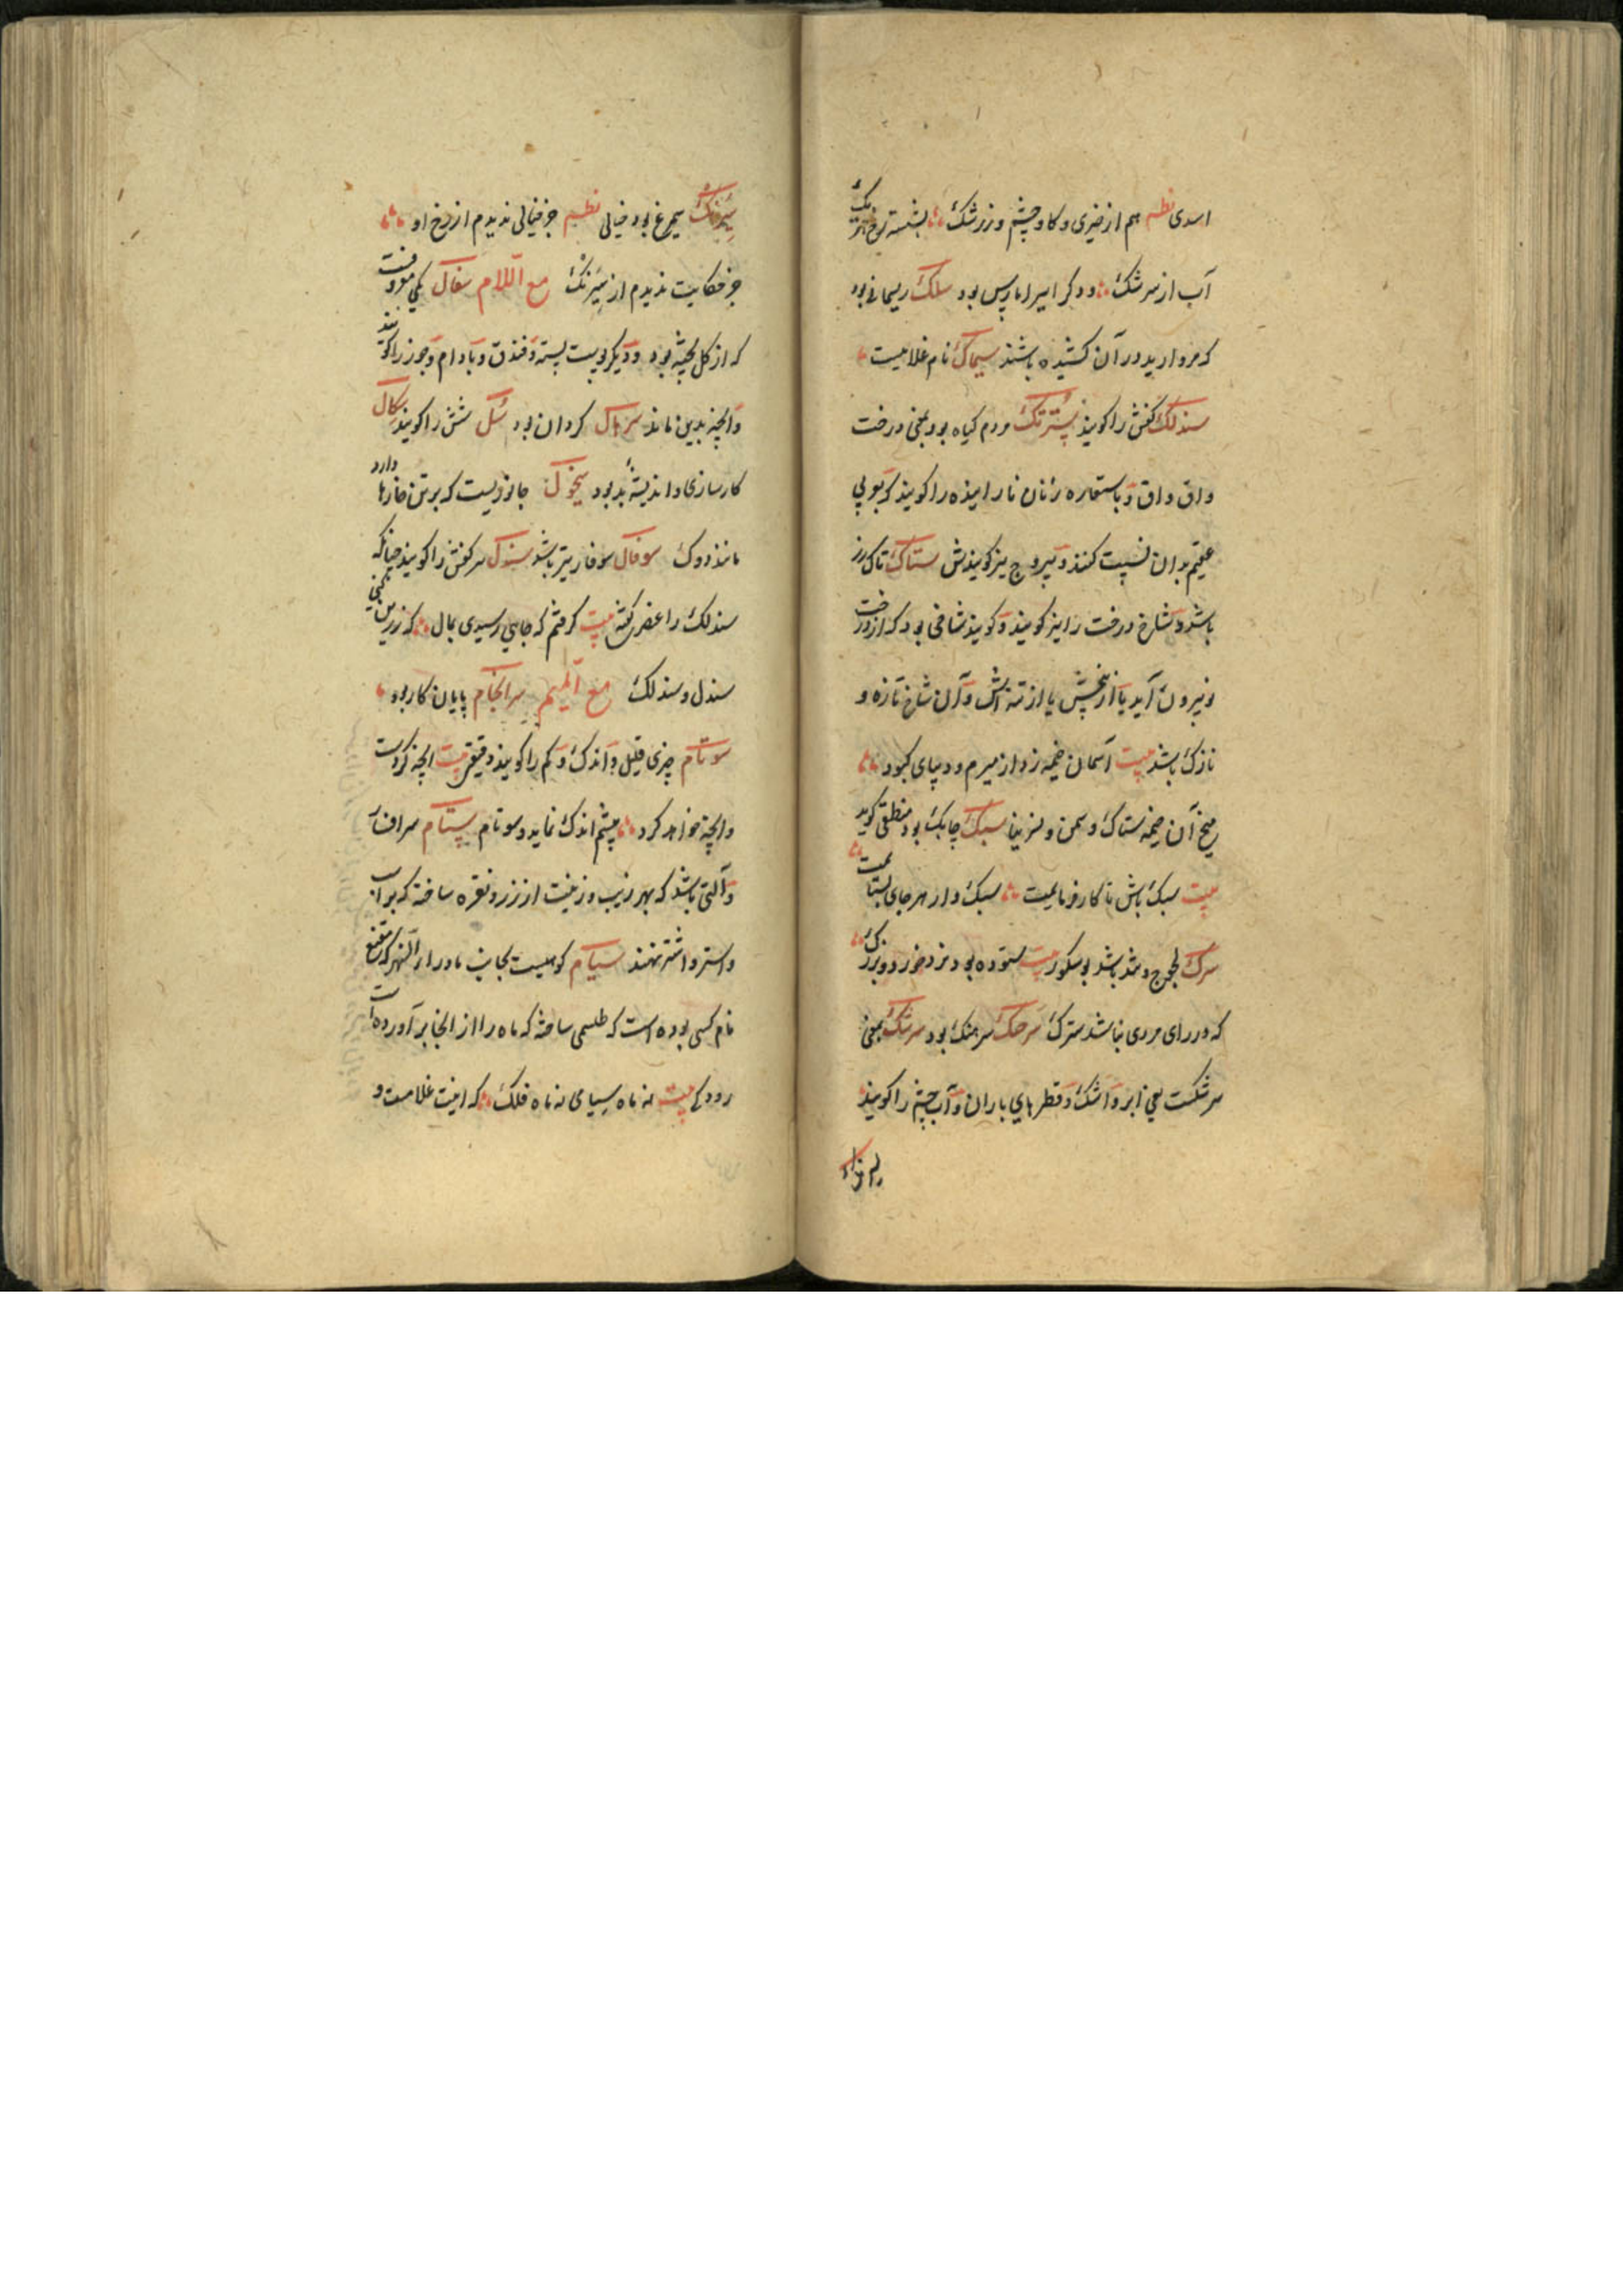 اسدی نظم هم از خیری و کاو چشم و زرشک بشسته رخ هر یک
آب از سرشک ودکر امیر اما ریس بود سلک ریسمانی بود
که مروارید در آن کشیده باشند سیماک نام غلامیست
سندلک کفش را کویند سترنک مردم کیاه بود یعنی درخت
واق واق و باستعاره زنان نازاینده را کویند که بوی
عقیم بدان نسبت کنند و یبروج نیز کویندش ستاک تاک رز
باشد و شاخ درخت را نیز کویند و کویند شاخی بود که از درخت
بیرون آید یا از بیخش یا از تنه اش و آن شاخ تازه و
نازک باشد بیت آسمان خیمه زد از بیرم و دیبای کبود
میخ آن خیمه ستاک و سمن و نسرینا سبک چابک بود منطقی کوید
بیت سبک باش تا کار فرمایمت سبک وار هر جای بستایمت
سرک لجوج و تند باشد بوشکور بیت ستوده بود نزد خرد و بزرک
که در رای مردی نباشد سترک سرحک سرهنک بود سرشک بمعنی
سرشکست یعنی ابر و اشک و قطرهای باران و آب چشم را کویند
سیرنک سیمرغ بود خیالی نظم جز خیالی ندیدم از رخ او
جز حکایت ندیدم از سیرنک مع اللام سفال یکی معروفست
که از کل پخته بود و دیکر پوست پسته و فندق و بادام و جوز را کویند
و آنچه بدین ماند کردان بود سل شش را کویند سکال
کارسازی و اندیشه بد بود سیخول جانوریست که بر تن خارها دارد
مانند دوک سوفال سوفار تیر باشد سندل سر کفش را کویند چنانکه
سندلک را عضری کفته بیت کرفتم که جایی رسیدی بمال که زرین کنی
سندل و سندلک مع المیم سرانجام پایان کار بود
سوتام چیزی قلیل و اندک و کم را کویند دقیقی بیت آنچه کردست
و آنچه خواهد کرد بچشم اندک نماید و سوتام ستام سرافسار
و آلتی باشد که بهر زیب و زینت از زر و نقره ساخته که بر اسب
و استر و اشتر نهند سیام کوهیست بجانب ماوراء النهر که مقنع
نام کسی بوده است که طلسمی ساخته که ماه را از آنجا بر آورده است
رودکی بیت نه ماه سیامی نه ماه فلک که اینت غلامست و